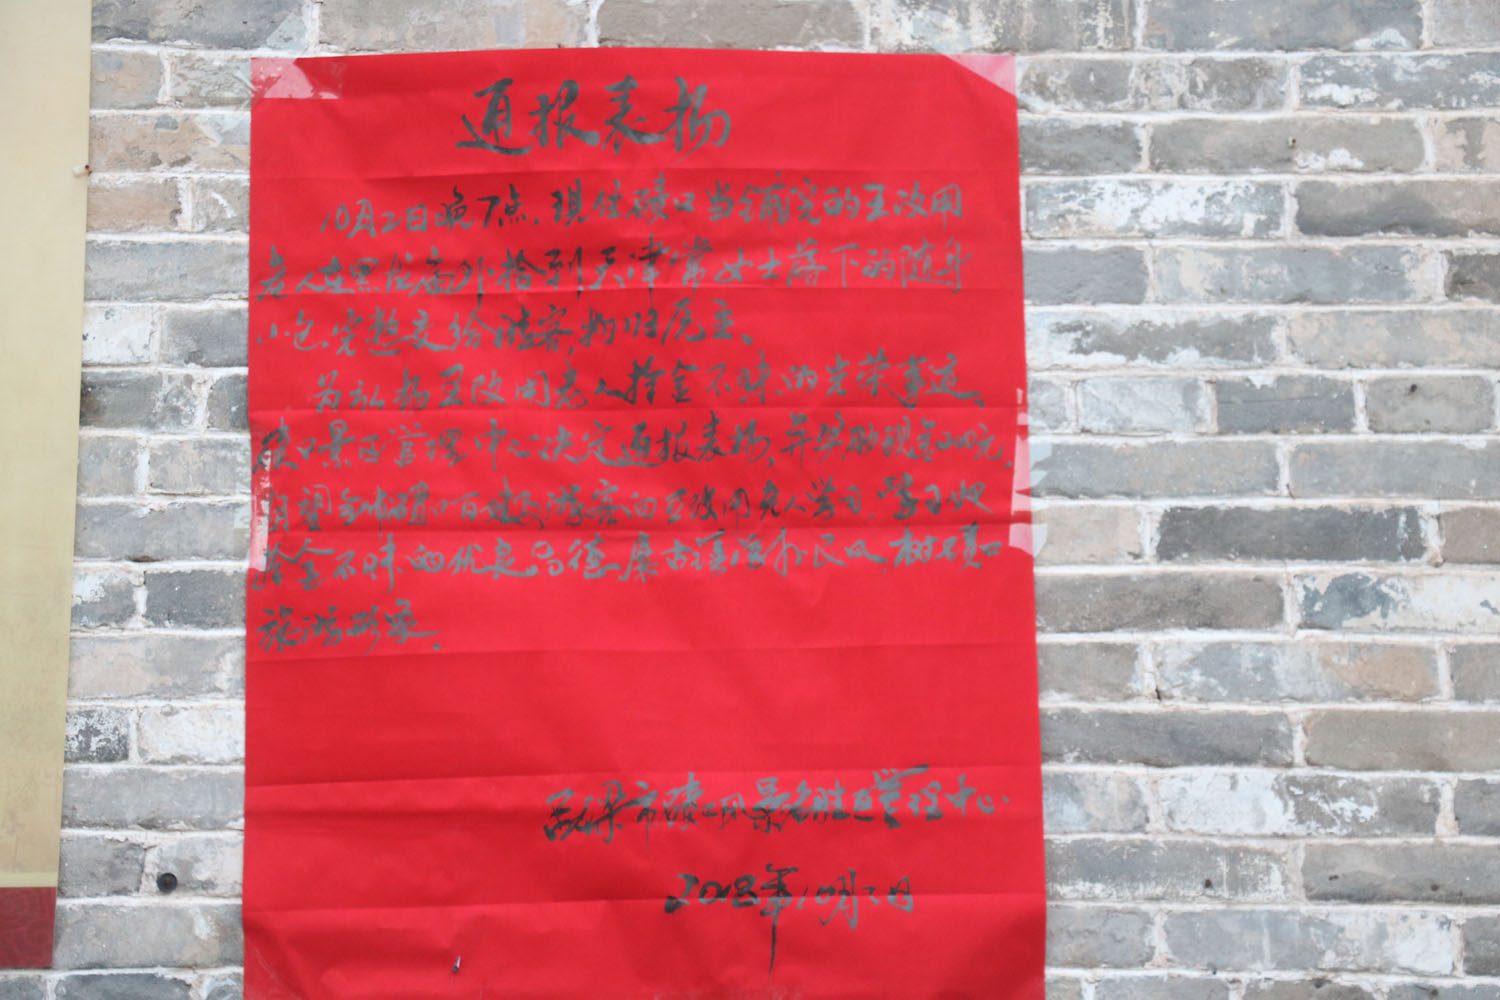 通报表扬
10月2日晚7点，现住碛口当铺院的王改用
老人在黑龙庙外拾到天津常女士落下的随身
小包，完整交给游客，物归原主。
为弘扬王改用老人拾金不昧的光荣事迹，
碛口景区管理中心决定通报表扬，并奖励现金200元，
期望全体碛口百姓及游客向王改用老人学习，学习他
拾金不昧的优良品德，展古镇淳朴民风，树碛口
旅游形象。
吕梁市碛口风景名胜区管理中心
2018年10月3日